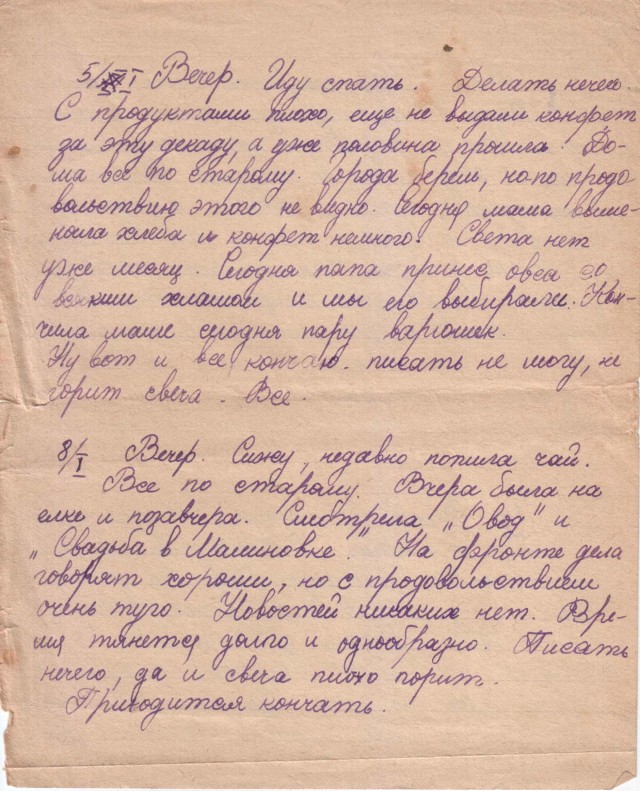 5/I Вечер. Иду спать. Делать нечего.
С продуктами плохо, еще не выдали конфет
за эту декаду, а уже половина прошла. До-
ма все по старому. Города берем, но по продо
вольствию этого не видно. Сегодня мама выме-
няла хлеба и конфет немного. Света нет
уже месяц. Сегодня папа принес овса со
всяким хламом и мы его выбирали. Кон-
чила маме сегодня пару варюшек.
Ну вот и все кончаю. писать не могу, не
горит свеча. Все.
8/I Вечер. Сижу, недавно попила чай.
Все по старому. Вчера была на
елке и позавчера. Смотрела „Овод" и
„Свадьба в Малиновке." На фронте дела
говорят хороши, но с продовольствием
очень туго. Новостей никаких нет. Вре-
мя тянется долго и однообразно. Писать
нечего, да и свеча плохо горит.
Приходится кончать.